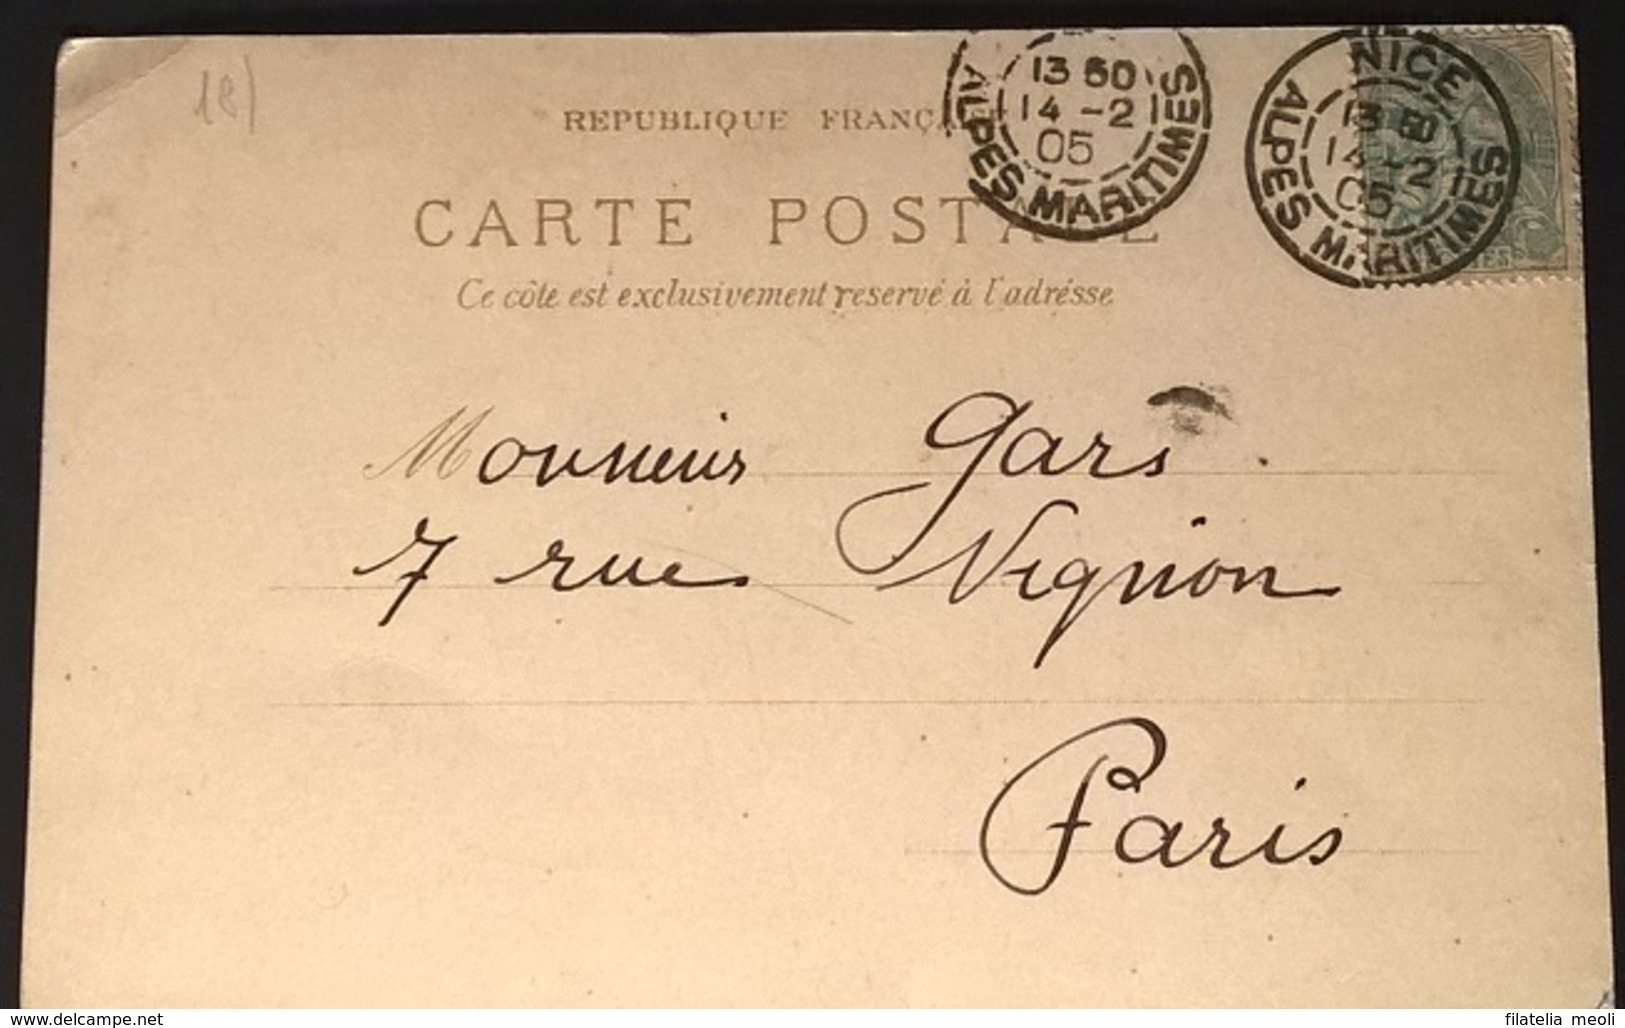 18)
REPUBLIQUE FRANÇAI
CARTE POSTALE
Ce côte est exclusivement reservé à l'adrésse
13 50
14 -2
05
ALPES MARITIMES
NICE
13 50
14 -2
05
ALPES MARITIMES
Monsieur Gars
7 rue Vignon
Paris
www.delcampe.net
filatelia meoli